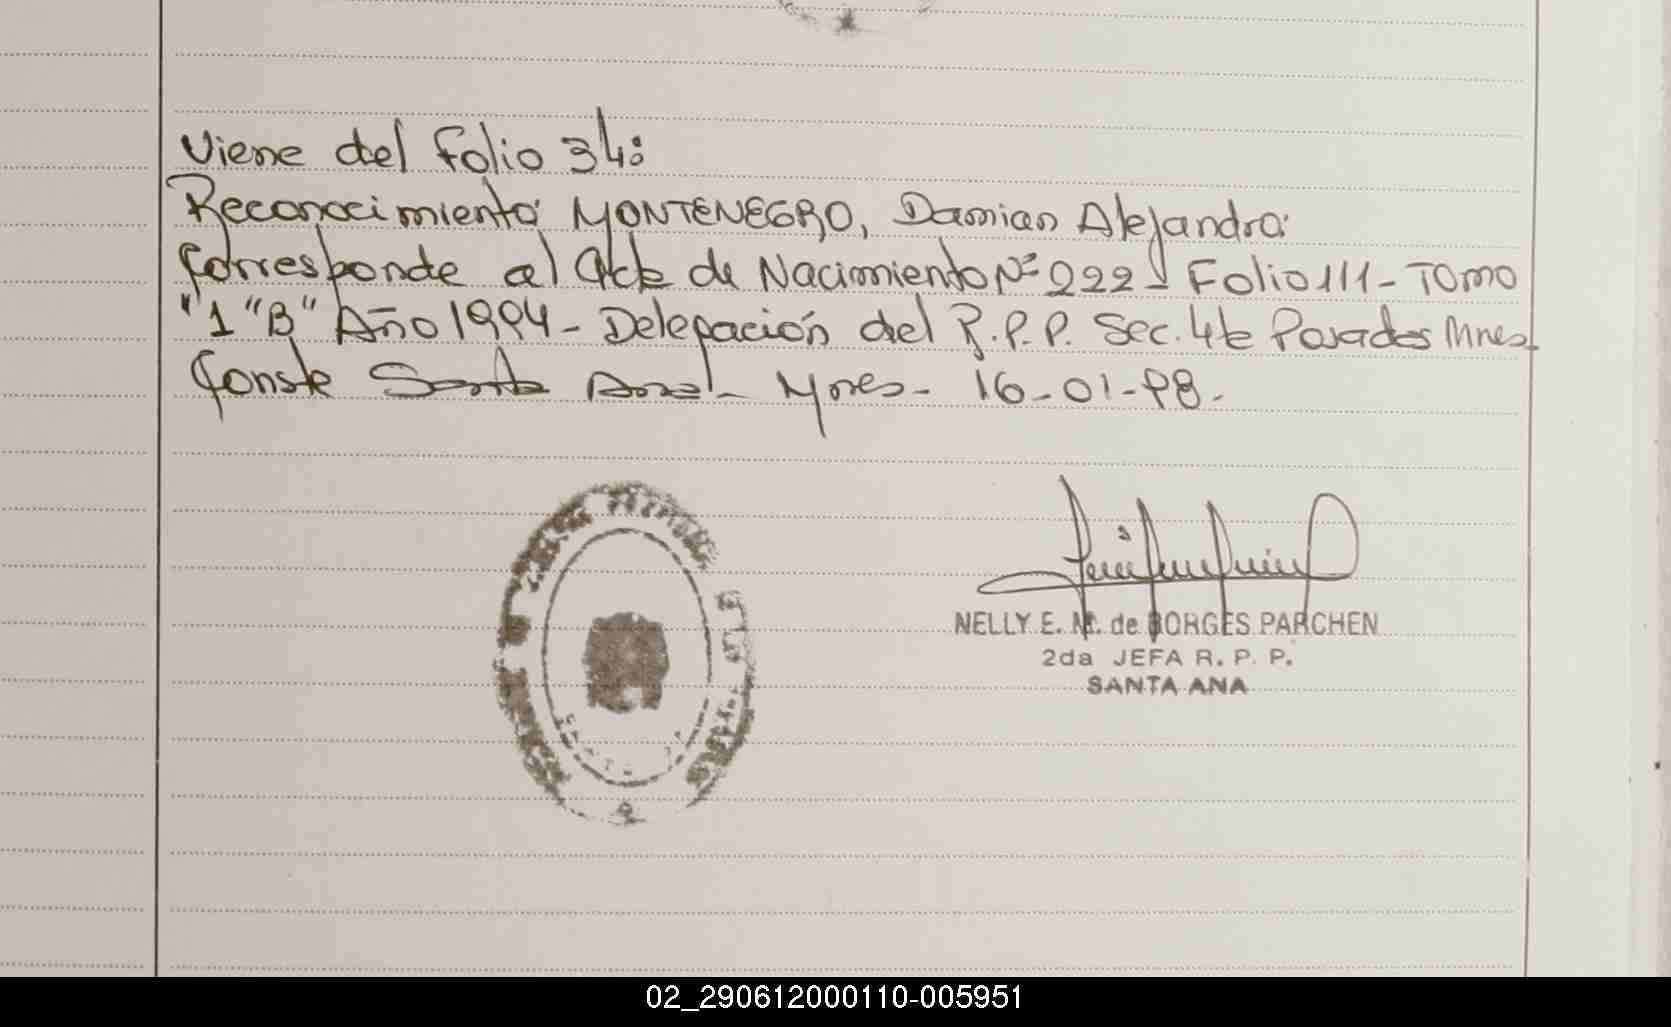 Viene del Folio 34:
Reconocimiento MONTENEGRO, Damian Alejandro:
Corresponde al Acta de Nacimiento Nº 222- Folio 111- TOMO
"1 "B" Año 1994- Delegación del R.P.P. Sec. 4ta Posadas Mnes.
Conste Santa Ana- Mnes- 16-01-98.
NELLY E. M. de BORGES PARCHEN
2da JEFA R. P. P.
SANTA ANA
02_290612000110-005951